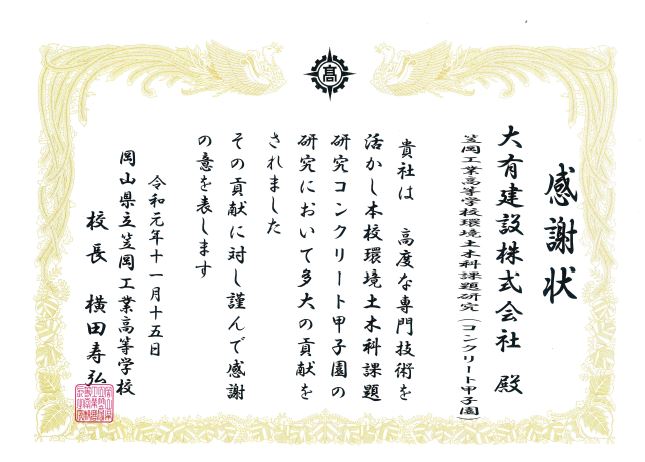 高
感謝状
大有建設株式会社 殿
笠岡工業高等学校環境土木科課題研究（コンクリート甲子園）
貴社は 高度な専門技術を
活かし本校環境土木科課題
研究コンクリート甲子園の
研究において多大の貢献を
されました
その貢献に対し謹んで感謝
の意を表します
令和元年十一月十五日
岡山県立笠岡工業高等学校
校長 横田寿弘